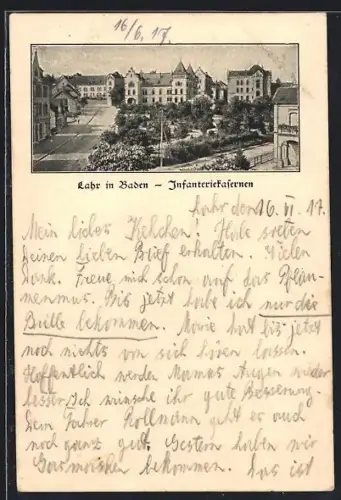 16/6. 17.
Lahr in Baden – Infanteriekasernen
Lahr den 16. VI. 17.
Mein liebes Kelchen! Habe soeben
Deinen lieben Brief erhalten. Vielen
Dank. Freue mich schon auf das Pflau-
menmus. Bis jetzt habe ich nur die
Brille bekommen. Marie hat bis jetzt
noch nichts von sich hören lassen.
Hoffentlich werden Mamas Augen wieder
besser. Ich wünsche ihr gute Besserung.
Dem Fahrer Kollmann geht es auch
noch ganz gut. Gestern haben wir
Gasmasken bekommen. Das ist